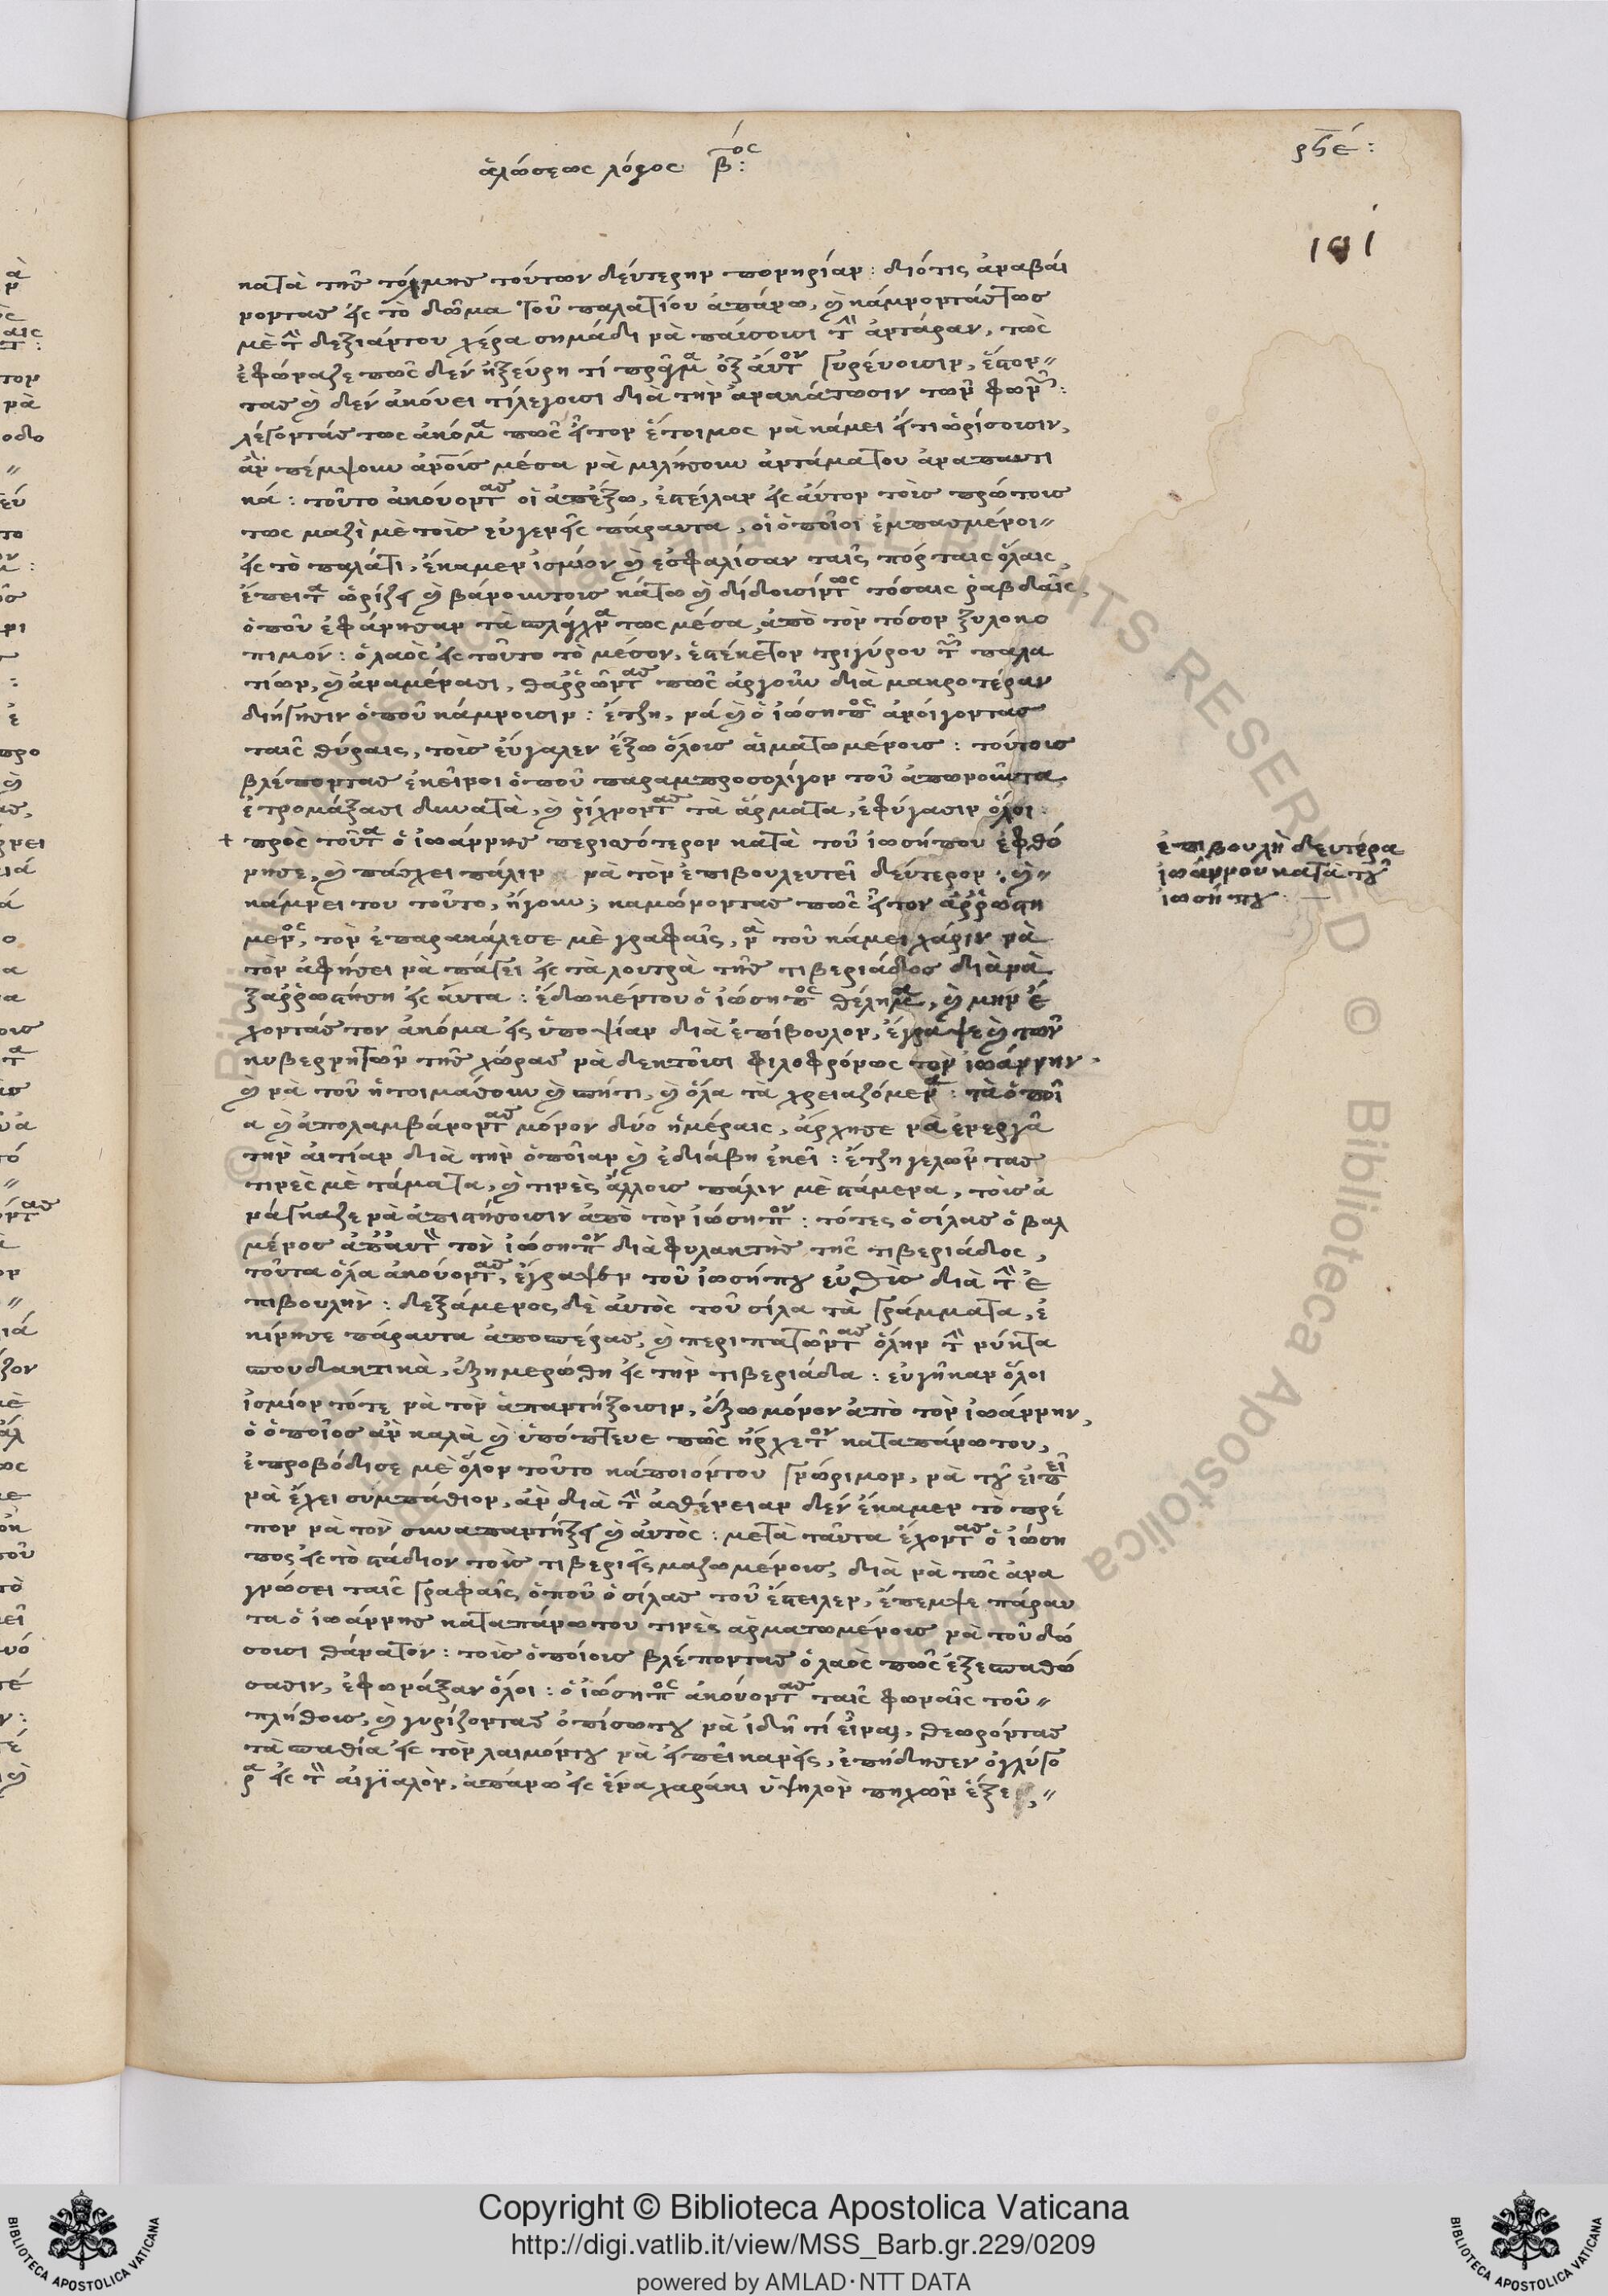 ἁλώσεως λόγος β̅ος:
ϙϛέ:
191
κατὰ τῆς τόλμης τούτων δεύτερην πονηρίαν: διότις ἀναβαί
νοντας εἰς τὸ δῶμα τοῦ παλατίου ἀπάνω, καὶ κάμνοντάς τως
μὲ τὴν δεξιάντου χέρα σημάδι νὰ παύσουσι τὴν ἀντάραν, τὼς
ἐφώναζε πῶς δὲν ἠξεύρη τί πρᾶγμα ὀξ αὐτὸν γυρεύουσιν, ἔστον
τας καὶ δὲν ἀκούει τίλεγουσι διὰ τὴν ἀνακάτωσιν τῶν φωνῶν:
λέγοντάς τως ἀκόμα πῶς ἦτον ἕτοιμος νὰ κάμει εἴτι ὁρίσουσιν,
ἂν πέμψουν μέσα νὰ μιλήσουν ἀντάματου ἀναπαυτι
κά: τοῦτο ἀκούοντας οἱ ἀπέξω, ἐστείλαν εἰς αὐτον τοὺς πρώτους
τως μαζὶ μὲ τοὺς εὐγενεῖς πάραυτα, οἱ ὁποῖοι ἐμπασμένοι
εἰς τὸ παλάτι, ἐκαμεν ἰσμίον καὶ ἐσφαλίσαν ταῖς πόρταις ὅλαις,
ἔπειτα ὥριζε καὶ βάνουντους κάτω καὶ δίδουσίντως τόσαις ῥαβδαῖς,
ὁποῦ ἐφάνησαν τὰ τως μέσα, ἀπὸ τὸν τόσον ξυλοκο
πιμόν: ὁ λαὸς εἰς τοῦτο τὸ μέσον, ἐστέκετον τριγύρου τῶν παλα
τίων, καὶ ἀναμένασι, θαῤῥῶντας πῶς ἀργοῦν διὰ μακροτέραν
διήγησιν ὁποῦ κάμνουσιν: ἔτζη, νά καὶ ὁ ἰώσηπος ἀνοίγοντας
ταῖς θύραις, τοὺς εὐγαλεν ἔξω ὅλους αἱματωμένους: τούτους
βλέποντας ἐκεῖνοι ὁποῦ παραμπροσολίγον τοῦ ἀπονοῦντα
ἐτρομάξασι δυνατὰ, καὶ ῥίχνοντας τὰ ἅρματα, ἐφύγασιν ὅλοι:
+ πρὸς τοῦτα ὁ ἰωάννης περισότερον κατὰ τοῦ ἰωσήπου ἐφθό
νησε, καὶ πάσχει πάλιν νὰ τὸν ἐπιβουλευτεῖ δεύτερον: καὶ
κάμνει του τοῦτο, ἤγουν; καμώνοντας πῶς ἦτον ἀῤῥωστη
μένος, τὸν ἐπαρακάλεσε μὲ γραφαῖς, νὰ τοῦ κάμει χάριν νὰ
τὸν ἀφήσει νὰ πάγει εἰς τὰ λουτρὰ τῆς τιβεριάδος διὰ νὰ
ξαῤῥωστήση εἰς αὐτα: ἐδωκέντου ὁ ἰώσηπος θέλημα, καὶ μὴν ἔ
χοντάς τον ἀκόμα εἰς ὑποψίαν διὰ ἐπίβουλον, ἔγραψε καὶ τῶν
κυβερνητῶν τῆς χώρας νὰ δεκτοῦσι φιλοφρόνως τὸν ἰωάννην,
καὶ νὰ τοῦ ἡτοιμάσουν καὶ σπήτι, καὶ ὅλα τὰ χρειαζόμενα: τὰ ὁποῖ
α καὶ ἀπολαμβάνοντας μόνον δύο ἡμέραις, ἀρχησε νὰ ἐνεργᾶ
τὴν αἰτίαν διὰ τὴν ὁποῖαν καὶ ἐδιάβη ἐκεῖ: ἔτζη γελῶν τας
τινὲς μὲ τάματα, καὶ τινὲς ἄλλους πάλιν μὲ στάμενα, τοὺς ἀ
νάγκαζε νὰ ἀπιστήσουσιν ἀπὸ τὸν ἰώσηπον: τότες ὁ σίλας ὁ βαλ
μένος ἀπαυτὸν τὸν ἰώσηπον διὰ φυλακτὴς τῆς τιβεριάδος,
τοῦτα ὅλα ἀκούοντας, ἔγραψεν τοῦ ἰωσήπου εὐθὺς διὰ τὴν ἐ
πιβουλὴν: δεξάμενος δὲ αὐτὸς τοῦ σίλα τὰ γράμματα, ἐ
κίνησε πάραυτα ἀποσπέρας, καὶ περιπατῶντας ὅλην τὴν νύκτα
σπουδακτικὰ, ἐξημερώθη εἰς τὴν τιβεριάδα: εὐγῆκαν ὅλοι
ἰσμίον τότε νὰ τὸν ἀπαντήξουσιν, ἔξω μόνον ἀπὸ τὸν ἰωάννην,
ὁ ὁποῖος ἂν καλὰ καὶ ὑπόπτευε πῶς ἤρχετον καταπάνωτου,
ἐπροβόδισε μὲ ὅλον τοῦτο κάποιόντου γνώριμον, νὰ τοῦ εἰπεῖ
νὰ ἔχει συμπάθιον, ἂν διὰ τὴν ἀσθένειαν δὲν ἔκαμεν τὸ πρέ
πον νὰ τὸν συναπαντήξει καὶ αὐτὸς: μετὰ ταῦτα ἔχοντας ὁ ἰώση
πος εἰς τὸ στάδιον τοὺς τιβεριεῖς μαζωμένους, διὰ νὰ τῶς ἀνα
γνώσει ταῖς γραφαῖς, ὁποῦ ὁ σίλας τοῦ ἔστειλεν, ἔπεμψε πάραυ
τα ὁ ἰωάννης καταπάνωτου τινὲς ἀρματωμένους νὰ τοῦ δώ
σουσι θάνατον: τοὺς ὁποίους βλέποντας ὁ λαὸς πῶς ἐξεσπαθώ
σασιν, ἐφωνάξαν ὅλοι: ὁ ἰώσηπος ἀκούοντας ταῖς φωναῖς τοῦ
πλήθους, καὶ γυρίζοντας ὀπίσωτου νὰ ἰδῆ τί εἶναι, θεωρόντας
τὰ σπαθία εἰς τὸν λαιμόντου νὰ εἰπεῖ κανεὶς, ἐπήδησεν ὀγλύγο
ρα εἰς τὸν αἰγϊαλὸν, ἀπάνω εἰς ἕνα χαράκι ὑψηλὸν πηχῶν ἕξε
ἐπιβουλὴ δευτέρα
ἰωάννου κατὰ τοῦ
ἰωσήπου
Copyright © Biblioteca Apostolica Vaticana
http://digi.vatlib.it/view/MSS_Barb.gr.229/0209
powered by AMLAD·NTT DATA
BIBLIOTECA APOSTOLICA VATICANA
BIBLIOTECA APOSTOLICA VATICANA